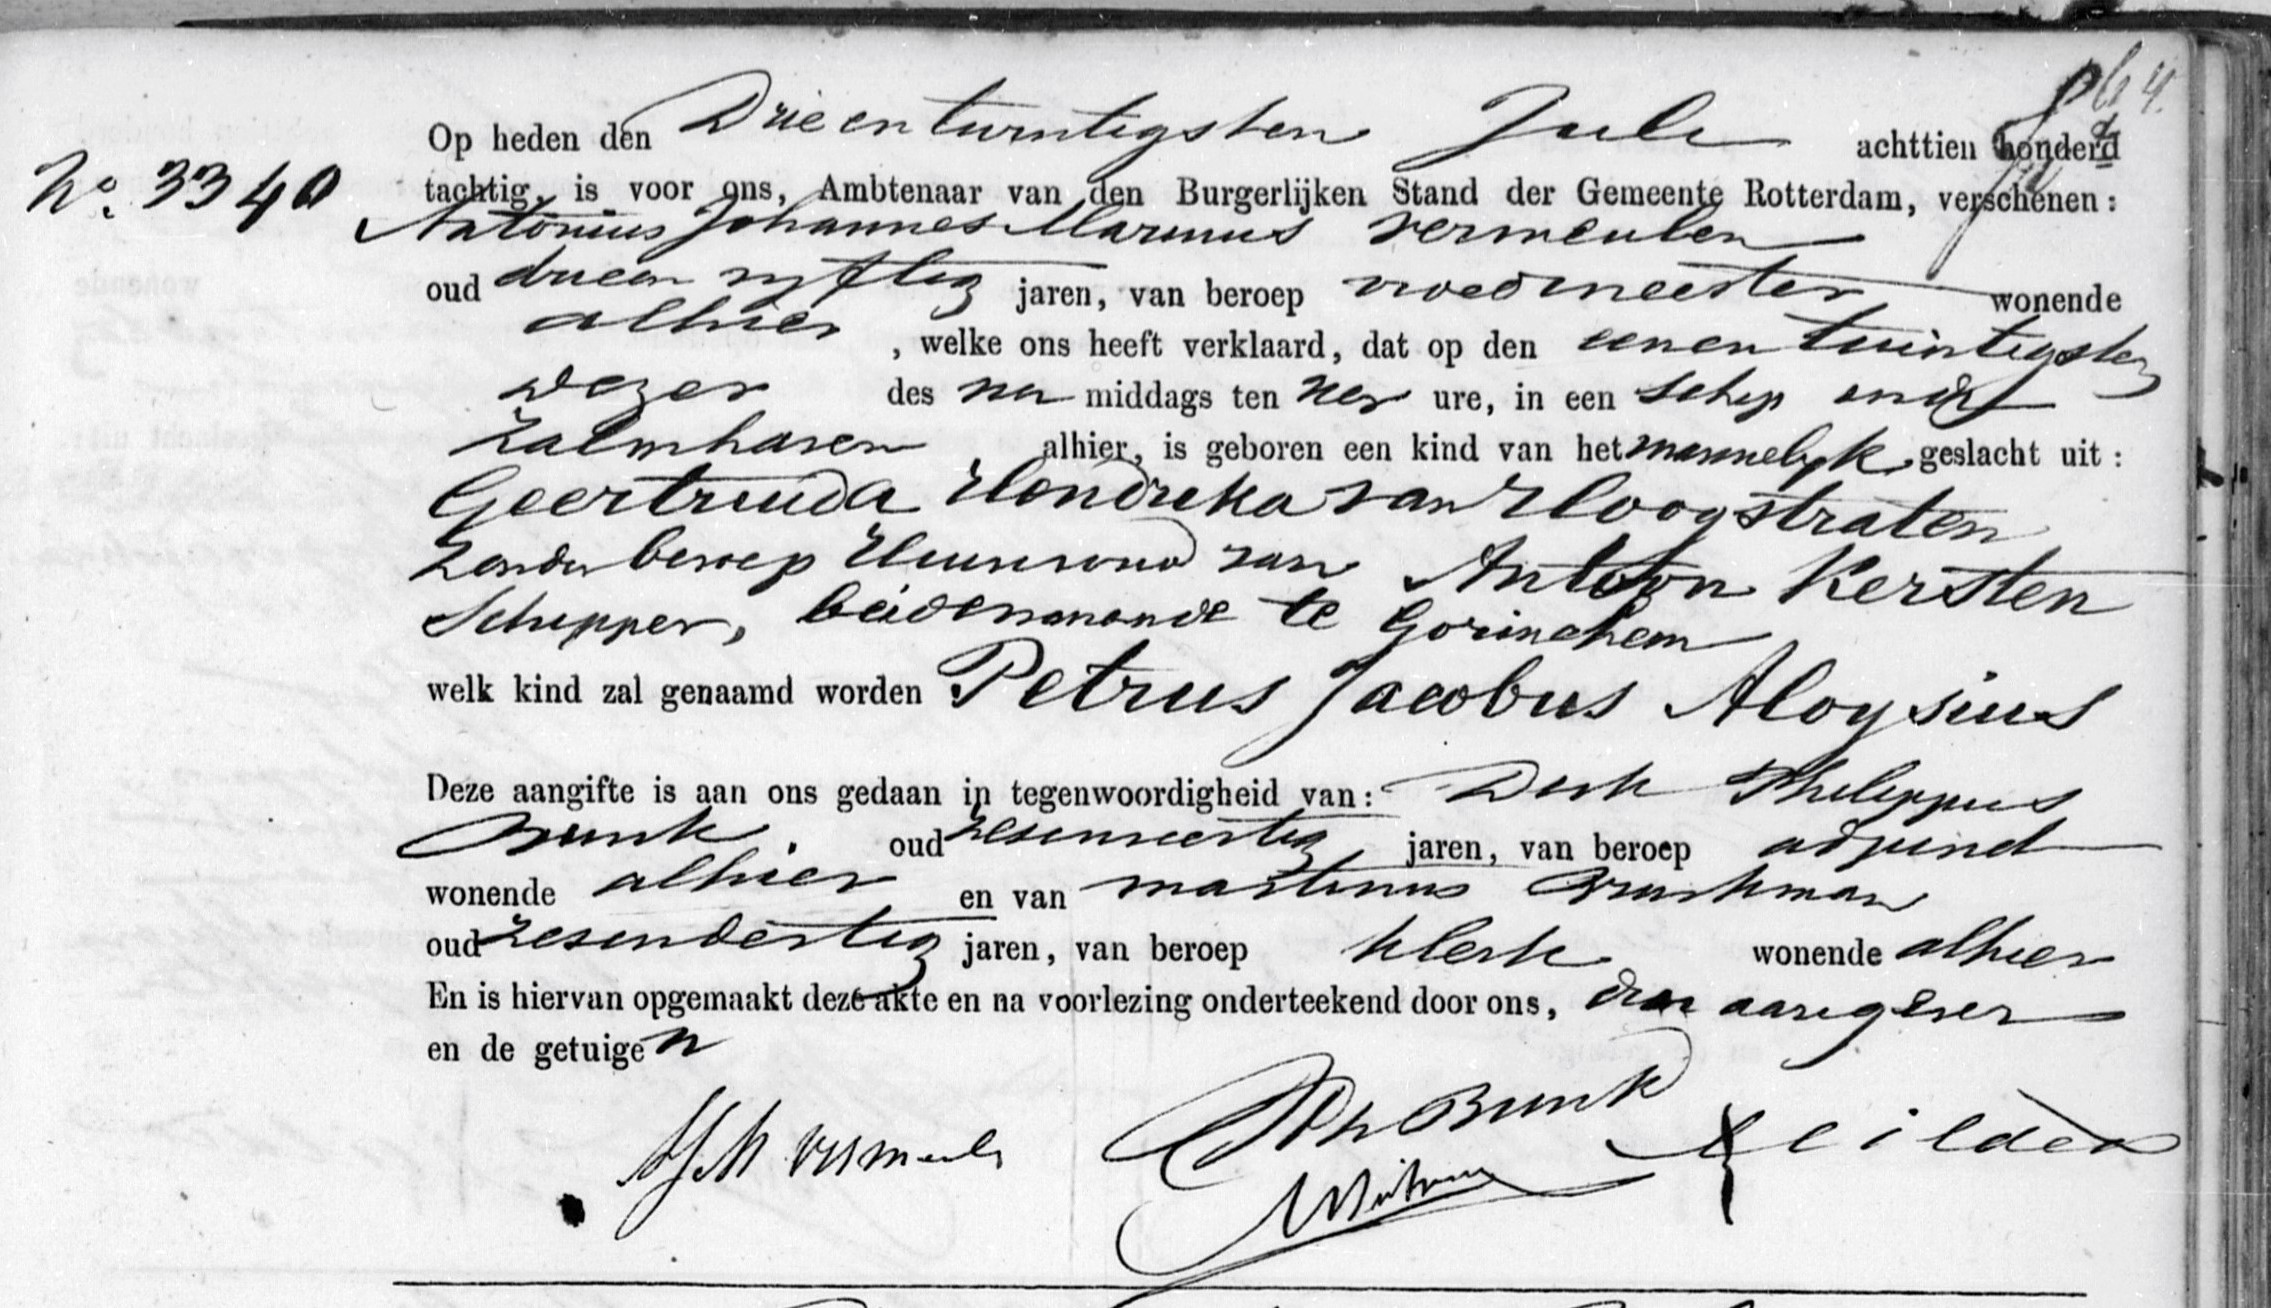 Op heden den Drieentwintigsten Juli achttien honderd
No. 3340
tachtig, is voor ons, Ambtenaar van den Burgerlijken Stand der Gemeente Rotterdam, verschenen:
Antonius Johannes Marinus Vermeulen
oud drieenvyftig jaren, van beroep vroedmeester wonende
alhier, welke ons heeft verklaard, dat op den eenentwintigsten
dezer des na middags ten vier ure, in een schip in de
Zalmhaven alhier, is geboren een kind van het mannelyk geslacht uit:
Geertruida Hendrika van Hoogstraten
zonder beroep Huisvrouw van Antoon Kersten
Schipper, beiden wonende te Gorinchem
welk kind zal genaamd worden Petrus Jacobus Aloysius
Deze aangifte is aan ons gedaan in tegenwoordigheid van: Dirk Philippus
Bunk oud zesenveertig jaren, van beroep adjunct
wonende alhier en van Martinus
oud zesendertig jaren, van beroep klerk wonende alhier
En is hiervan opgemaakt deze akte en na voorlezing onderteekend door ons, den aangever
en de getuigen
AJM Vermeulen DPh Bunk